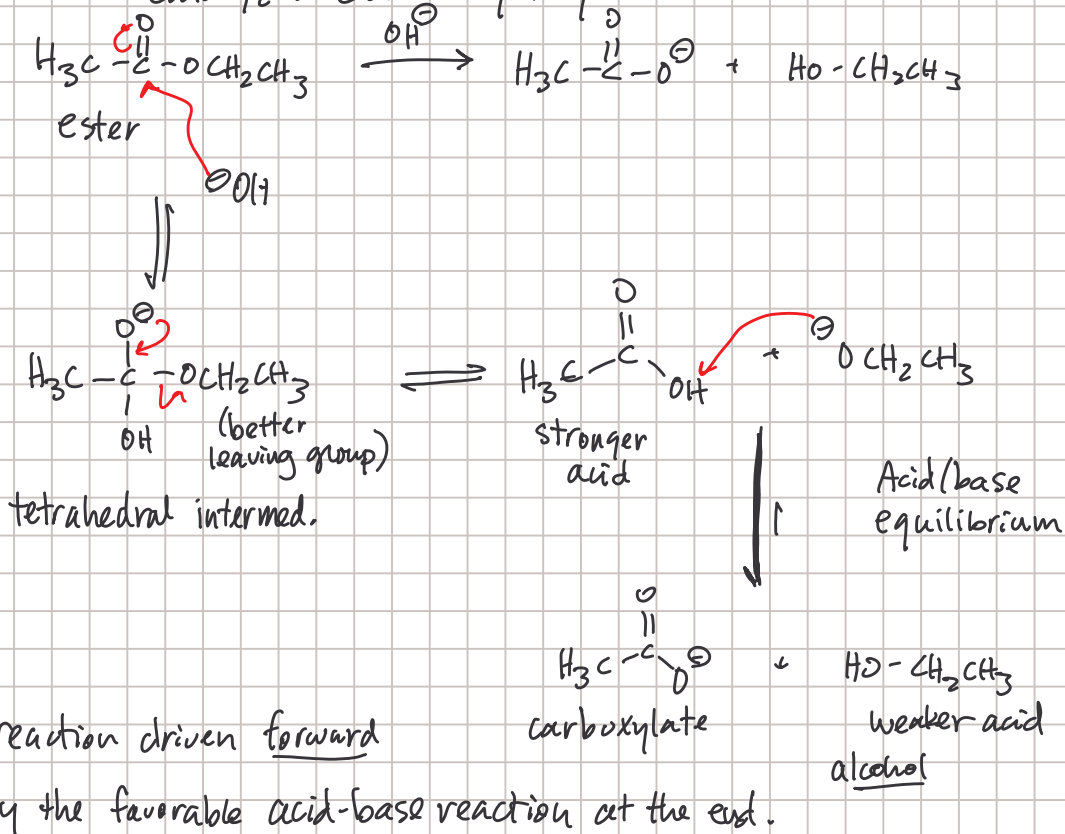 H₃C-C-OCH₂CH₃ OH⊖ H₃C-C-O⊖ + HO-CH₂CH₃
O O
ester
⊖OH
O⊖ O ⊖
H₃C-C-OCH₂CH₃ H₃C C OH + OCH₂CH₃
OH
(better
leaving group)
stronger
acid
tetrahedral intermed.
Acid/base
equilibrium
O
H₃C-C O⊖ + HO-CH₂CH₃
carboxylate weaker acid
alcohol
reaction driven forward
the favorable acid-base reaction at the end.